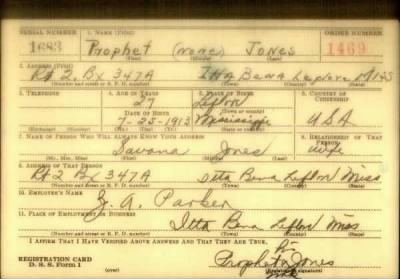 SERIAL NUMBER 1. NAME (Print) ORDER NUMBER
1683 Prophet (none) Jones 1469
(First) (Middle) (Last)
2. ADDRESS (Print)
Rt 2. Bx 347A ITTA Bena Leflore Miss
(Number and street or R. F. D. number) (Town) (County) (State)
3. TELEPHONE 4. AGE IN YEARS 5. PLACE OF BIRTH 6. COUNTRY OF CITIZENSHIP
27 Leflor
(Town or county)
DATE OF BIRTH
7-25-1913 Mississippi USA
(Exchange) (Number) (Mo.) (Day) (Yr.) (State or country)
7. NAME OF PERSON WHO WILL ALWAYS KNOW YOUR ADDRESS 8. RELATIONSHIP OF THAT PERSON
Savana Jones wife
(Mr., Mrs., Miss) (First) (Middle) (Last)
9. ADDRESS OF THAT PERSON
Rt 2 Bx 347A Itta Bena Leflor Miss
(Number and street or R. F. D. number) (Town) (County) (State)
10. EMPLOYER'S NAME
A. Parker
11. PLACE OF EMPLOYMENT OR BUSINESS
Itta Bena Leflor Miss
(Number and street or R. F. D. number) (Town) (County) (State)
I AFFIRM THAT I HAVE VERIFIED ABOVE ANSWERS AND THAT THEY ARE TRUE.
Prophet Jones
REGISTRATION CARD
D. S. S. Form 1 (over) (Registrant's signature)